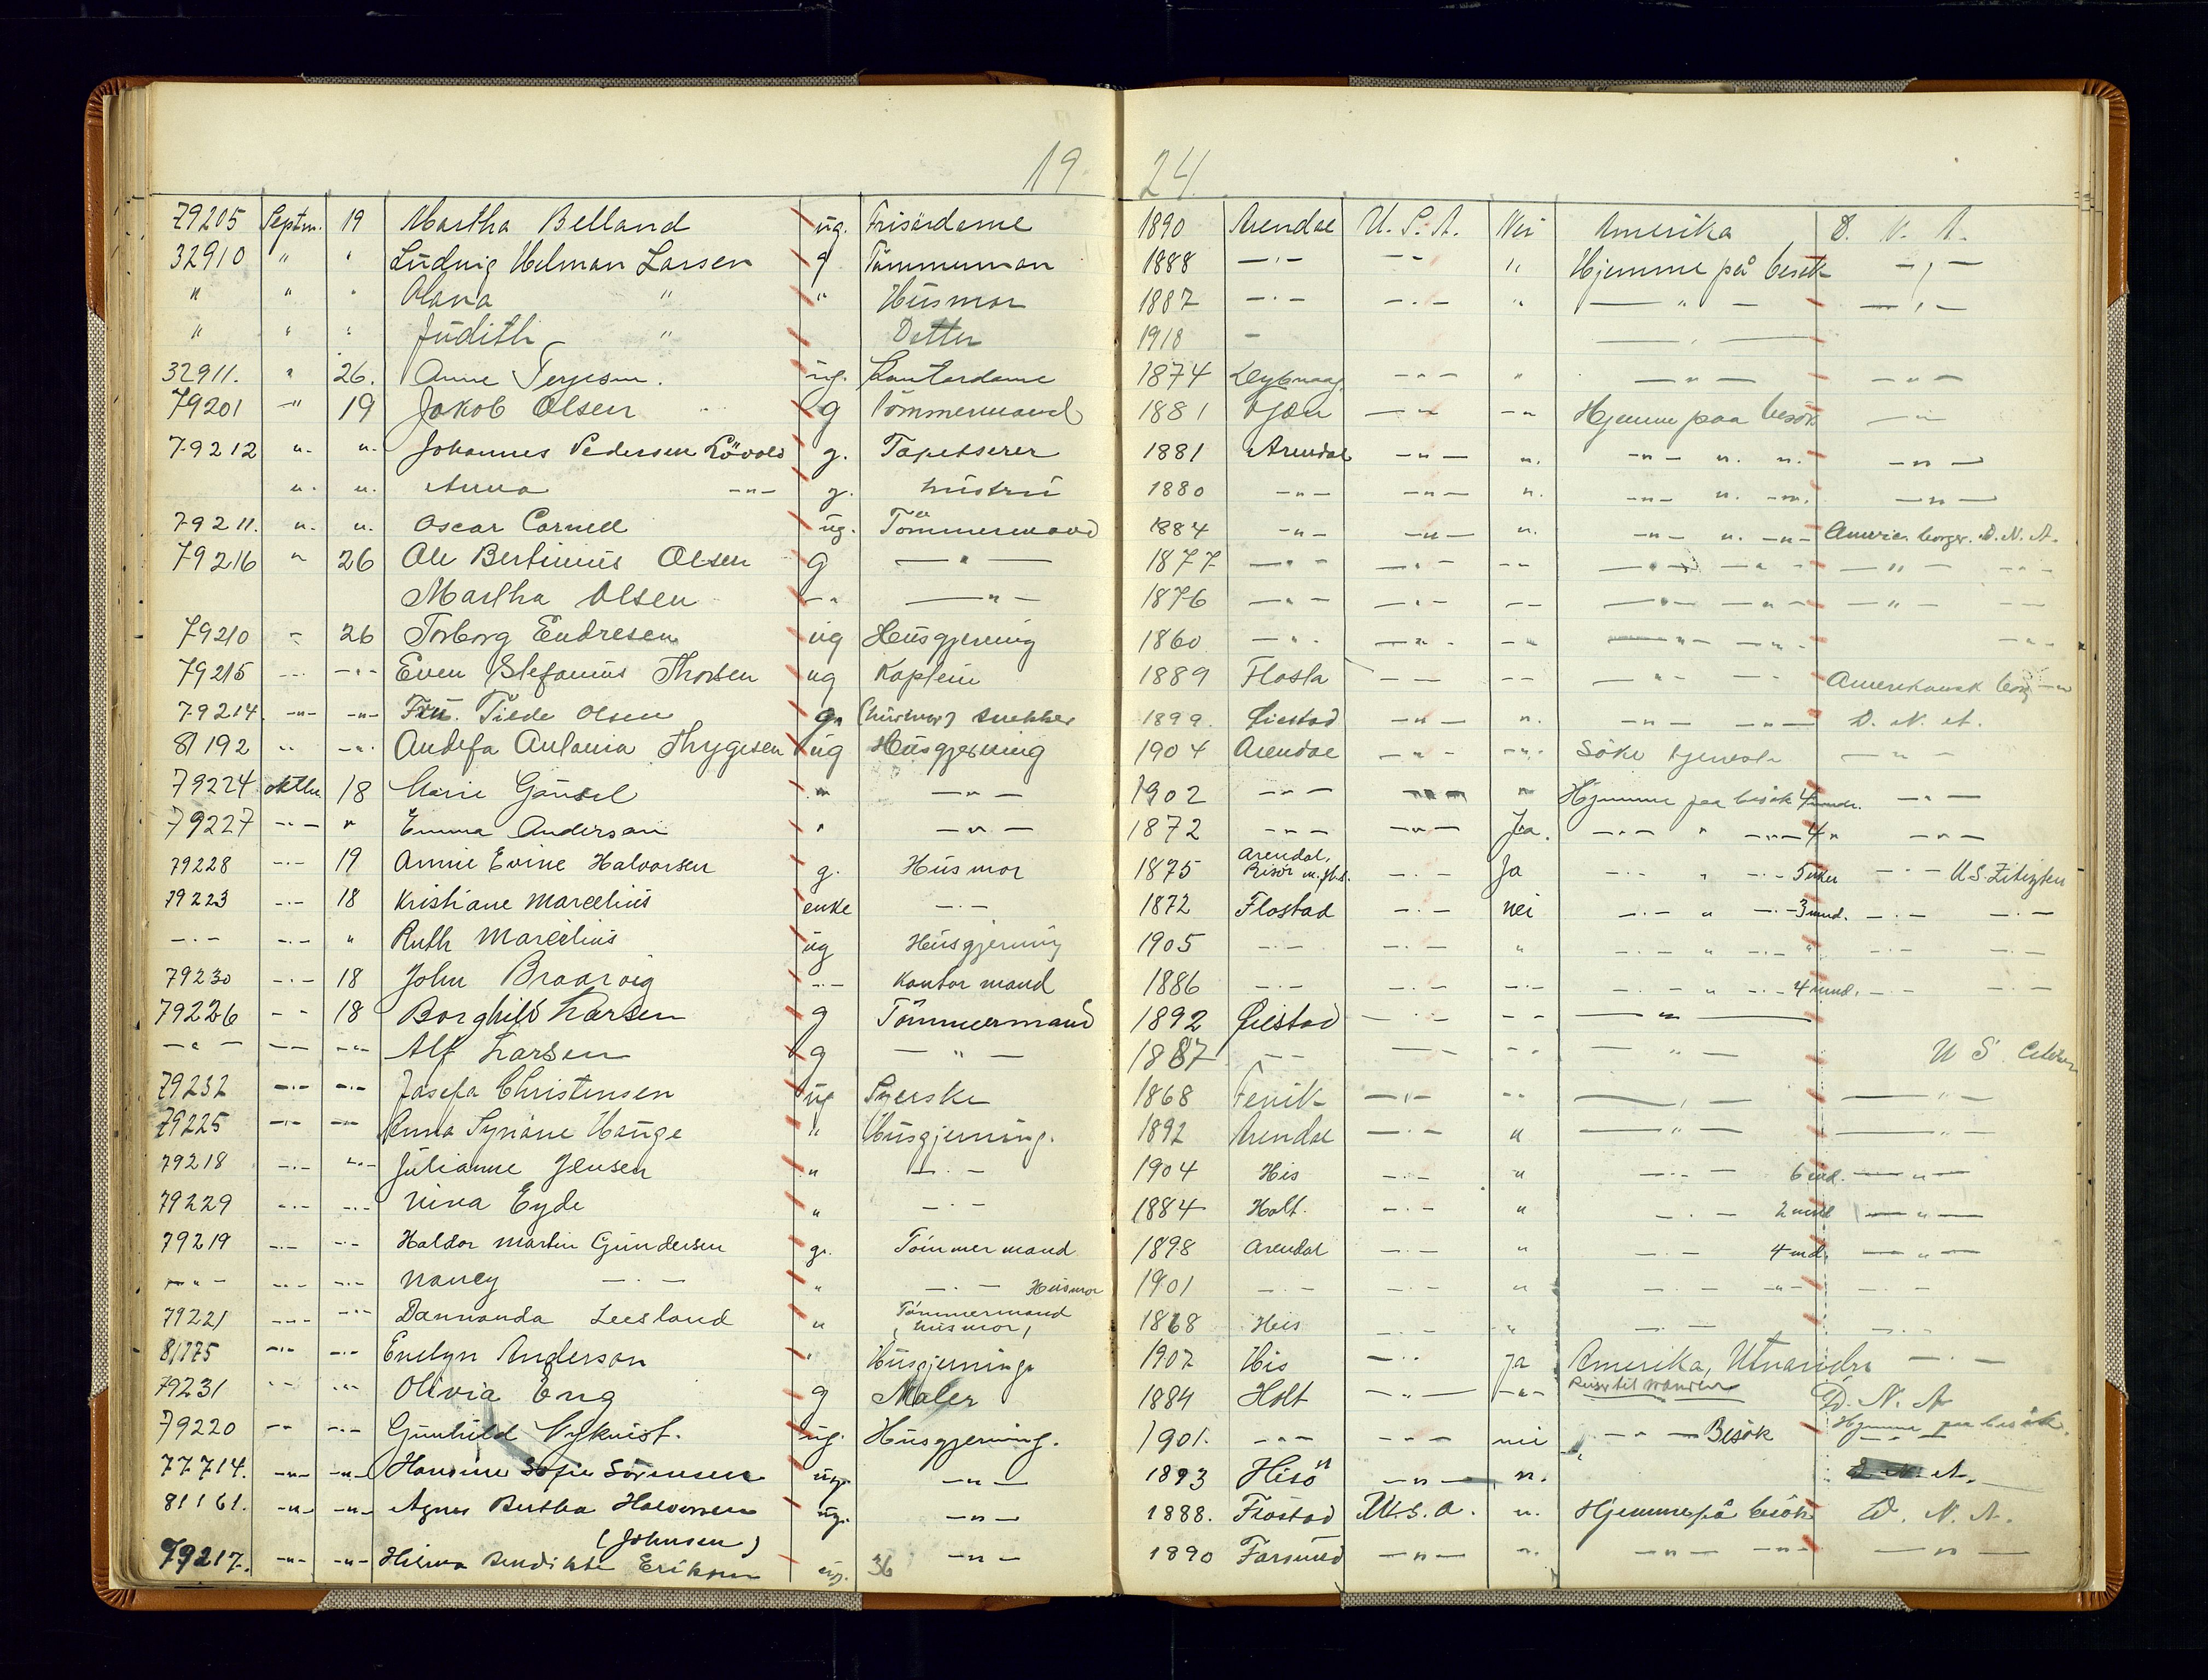 19 24
79205 Septm. 19 Martha Belland ug. Frisördame 1890 Arendal U.S.A. Nei Amerika D. N. A.
32910 " " Ludvig Helman Larsen g Tømmerman 1888 —"— —"— " Hjemme på besøk —"—
" " " Olava " " Husmor 1887 —"— —"— " —"— —"—
" " " Judith " Datter 1918 — —"—
32911. " 26. Anne Terjesen. ug. Kontordame 1874 Dybvaag —"— " —"— —"—
79201 —"— 19 Jakob Olsen g Tömmermand 1881 —"— —"— Hjemme paa besök —"—
79212 ". ". Johannes Pedersen g. Tapetserer 1881 Arendal —"— ". —"— ". ". —"—
". ". Anna —"— g. hustru 1880 —"— —"— ". —"— ". —"—. —"—
79211. ". ". Oscar Cornell ug. Tömmermand 1884 —"— —"— ". —"— ". —"— Americ. borger. D.N.A.
79216 " 26 Ole Bertinius Olsen g —"— 1877 —"— —"— —"— —"— —"— —"— —"—
Martha Olsen —"— —"— 1876 —"— —"— —"— —"— —"— —"— —"—
79210 — 26 Torborg Endresen ug Husgjerning 1860 —"— —"— —"— —"— —"— —"—
79215 —"— —"— Even Stefanus Thorsen ug Kaptein 1889 Flosta —"— —"— —"— —"— Amerikansk borg —"—
79214. —"— —"— Fru. Tilde Olsen g. (husmor) snekker 1899. Øiestad —"— ". —"— —"— D. N. A.
81192 " —"— Andefa Antonia Thygesen ug Husgjerning 1904 Arendal —"— —"— Söke tjeneste —"—
79224 oktbr 18 Marie " —"— 1902 —"— —"— " Hjemme paa besøk 4 mndr. —"—
79227 —"— " Emma Anderson " —"— 1872 —"— —"— Ja. —"— " —"— 4 " —"—
79228 —"— 19 Annie Evine Halvorsen g. Husmor 1875 Arendal, Risör —"— Ja —"— " —"— 5 uker —"— U.S. Zitizten
79223 —"— 18 Kristiane Marcelius enke —"— 1872 Flostad —"— nei —"— " —"— 3 mnd. —"— —"—
—"— —"— " Ruth Marcelius ug Husgjerning 1905 —"— —"— " —"— " —"— " —"— —"—
79230 —"— 18 John Braarvig —"— Kontor mand 1886 —"— —"— —"— —"— " —"— 4 mnd. —"— —"—
79226 —"— 18 Borghild Larsen g Tömmermand 1892 Øiestad —"— —"— —"—
—"— —"— —"— Alf Larsen g —"— 1887 —"— —"— —"— —"— U S Citizen
79232 —"— —"— Josefa Christensen ug Syerske 1868 Fevik —"— —"— —"— —"—
79225 —"— —"— Anna Syriane Hauge " Husgjerning. 1892 Arendal —"— " —"— —"—
79218 —"— —"— Julianne Jensen " —"— 1904 His —"— " —"— 6 md. —"—
79229 —"— —"— Nina Eyde " —"— 1884 Holt. —"— " —"— 2 mnd —"—
79219 —"— —"— Haldor Martin Gundersen g. Tömmermand 1898 Arendal —"— " —"— 4 md. —"—
—"— —"— —"— Nancy —"— " —"— Husmor 1901 —"— —"— " —"— —"— —"—
79221 —"— —"— Dannanda Leesland " Tömmermand (husmor) 1868 His —"— " —"— —"—
81175 —"— —"— Evelyn Anderson " Husgjerning 1907 His —"— ja Amerika, Utvandre —"—
79231 —"— —"— Olivia Eng g Maler 1884 Holt —"— —"— Reise til manden D. N. A
79220 —"— —"— Gunhild Nykvist. ug. Husgjerning. 1901. —"— —"— nei —"— Besök Hjemme paa besök
77714. —"— —"— Hansine Sofie Sörensen ug. —"— 1893 Hisö —"— ". D. N. A.
81161. —"— —"— Agnes Bertha Halvorsen ug. —"— 1888. Flostad U.S.A. ". Hjemme på besök D. N. A.
(Johnsen)
79217. —"— —"— Hilma Bendikte Eriksen ug. 36 —"— 1890 Farsund —"— ". —"— —"— —"—